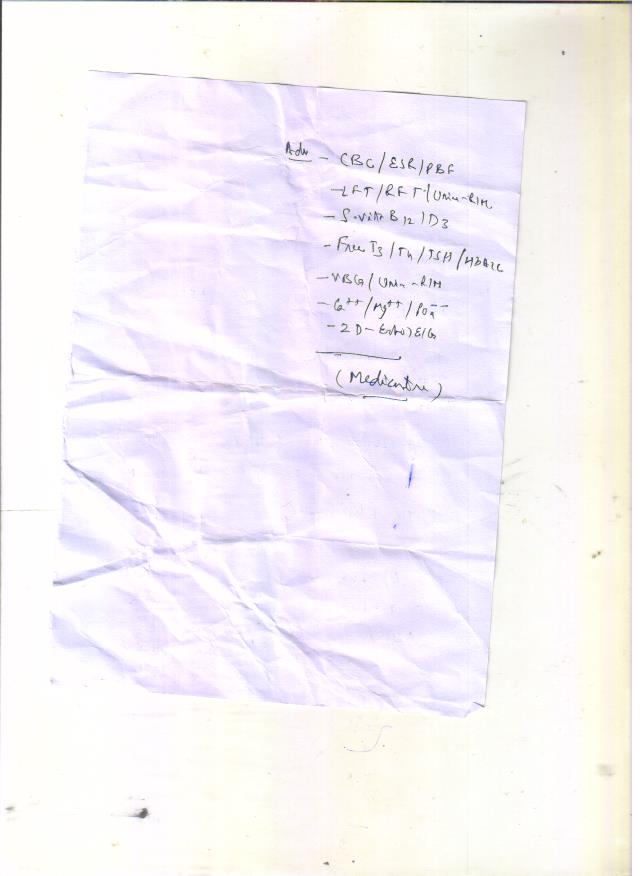 Adv - CBC/ESR/PBF
- LFT/RFT/Urine-R/M
- S.vit B12/D3
- Free T3/T4/TSH/HBA1C
- VBG/Urine-R/M
- Ca++/Mg++/PO4--
- 2D-Echo/ECG
(Medicine)